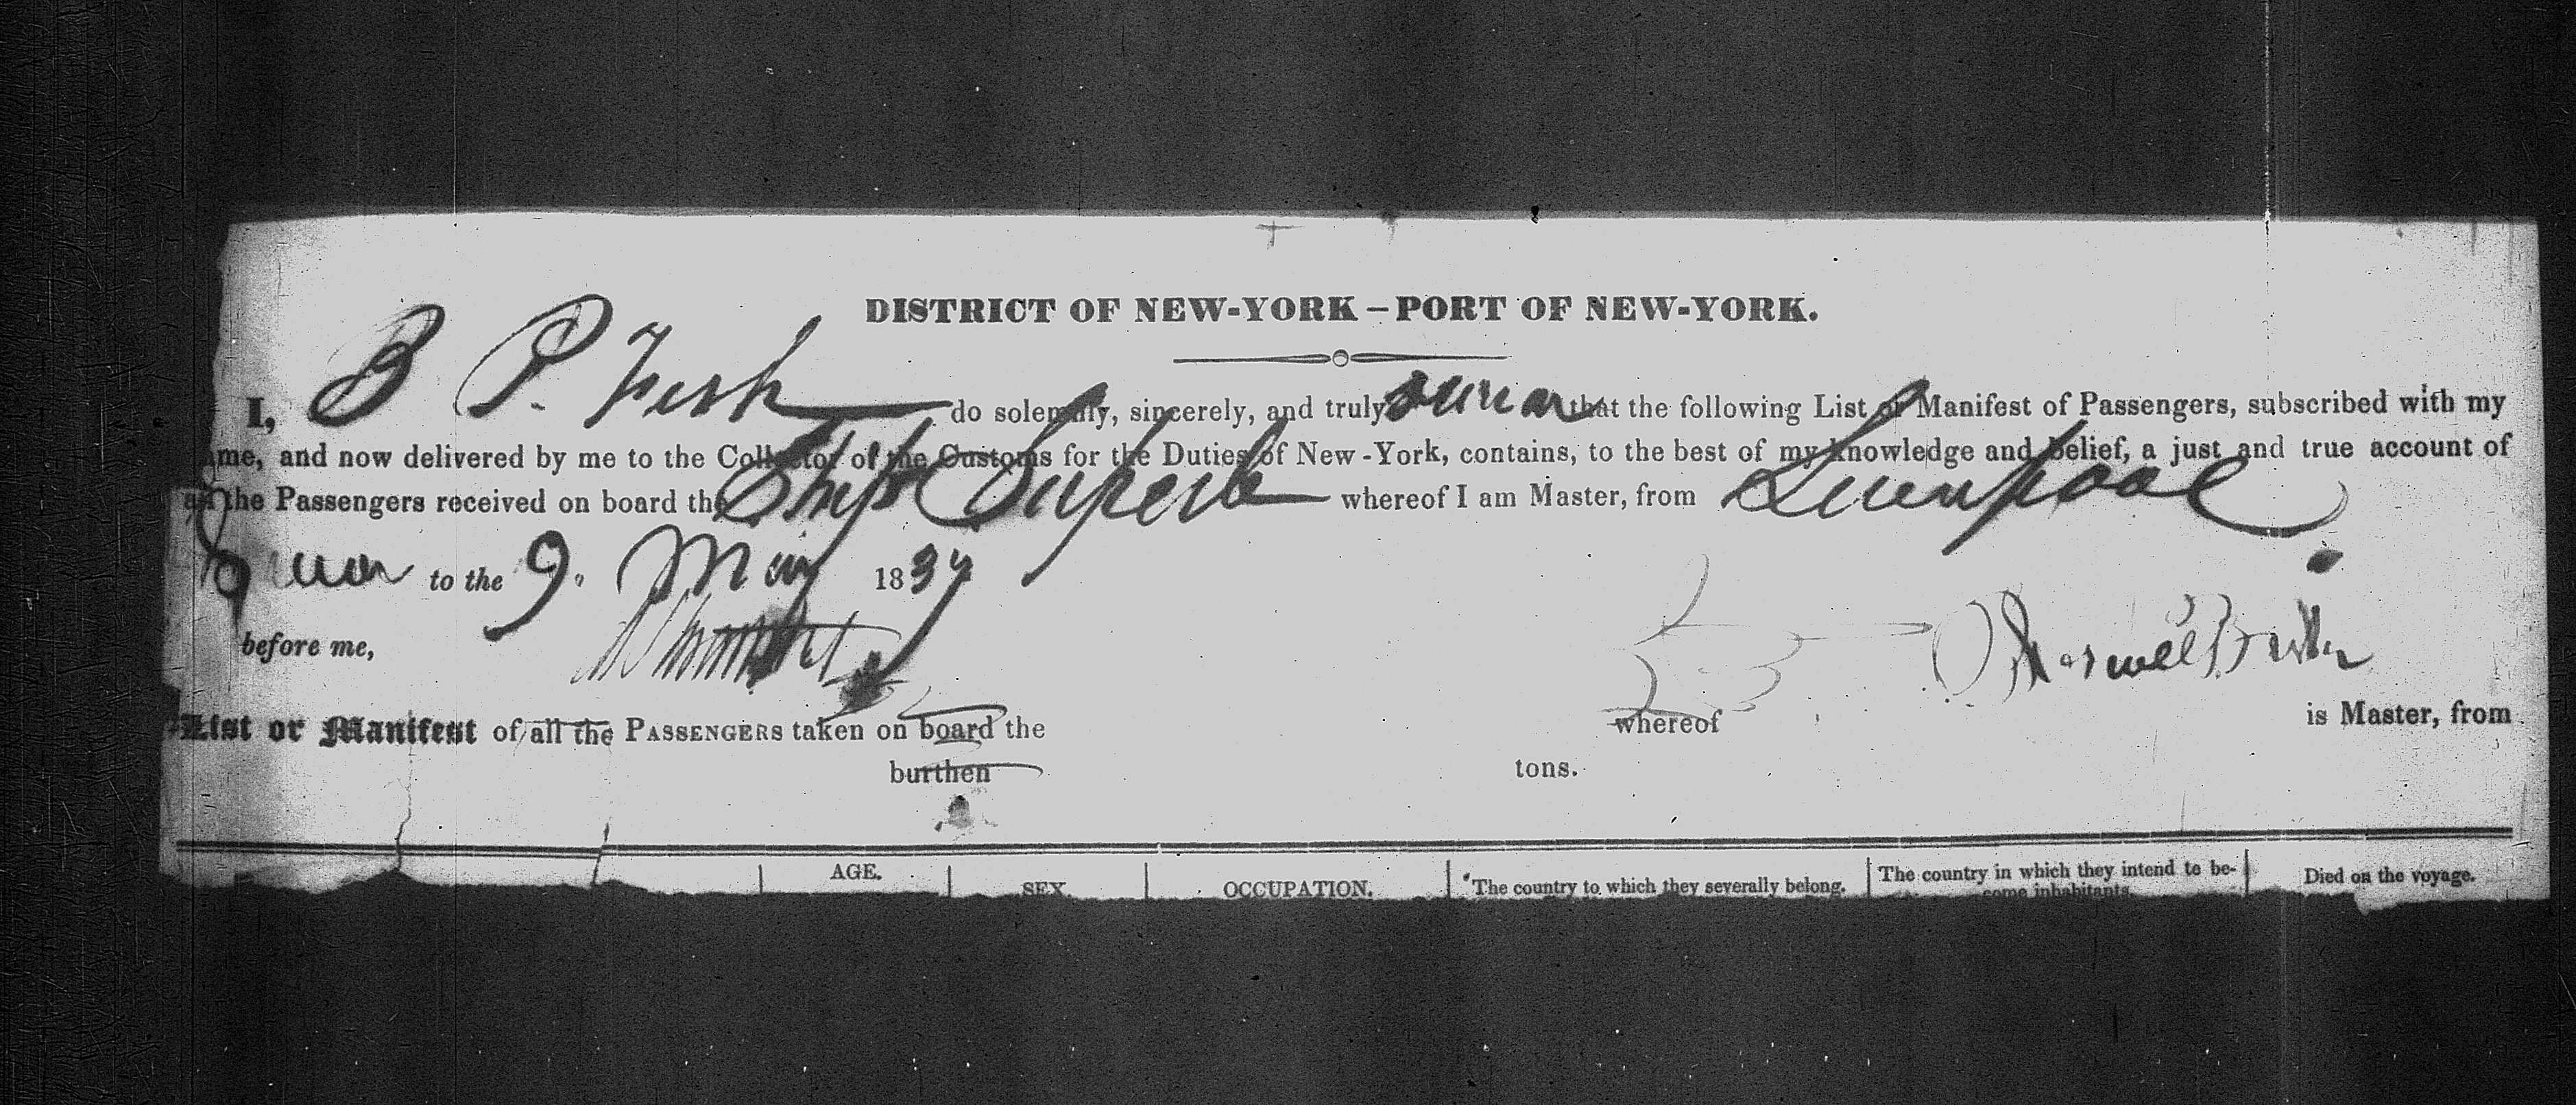 DISTRICT OF NEW-YORK – PORT OF NEW-YORK.
I, B P. Fish do solemnly, sincerely, and truly swear that the following List or Manifest of Passengers, subscribed with my
me, and now delivered by me to the Collector of the Customs for the Duties of New-York, contains, to the best of my knowledge and belief, a just and true account of
all the Passengers received on board the Ship Superb whereof I am Master, from Liverpool
to the 9. May 1837
before me,
List or Manifest of all the PASSENGERS taken on board the whereof is Master, from
burthen tons.
AGE. SEX OCCUPATION. The country to which they severally belong. The country in which they intend to be- come inhabitants Died on the voyage.